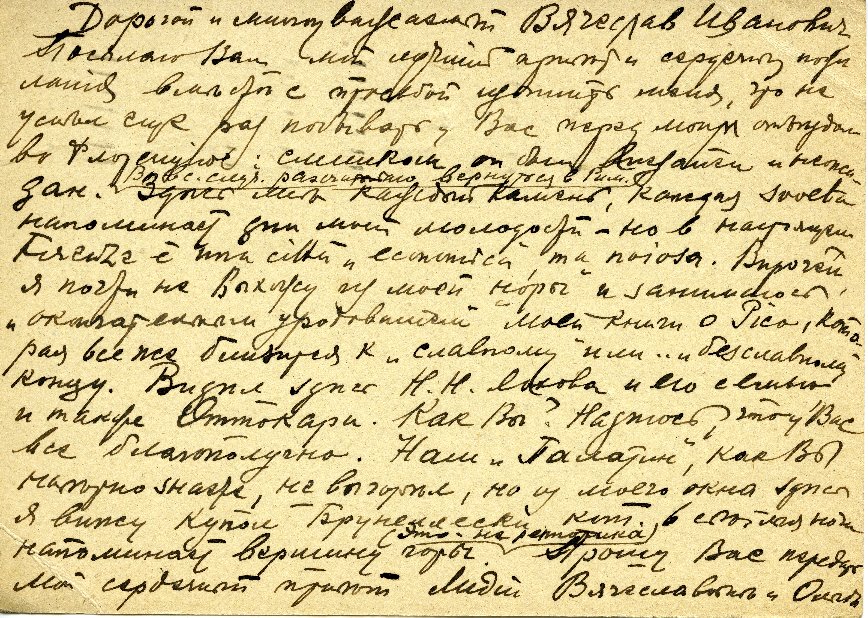 Дорогой и многоуважаемый Вячеслав Иванович
Посылаю Вам мой лучший привет и сердечные поже
лания вместе с просьбой извинить меня, что не
успел еще раз побывать у Вас перед моим отъездом
во Флоренцию: слишком он был внезапен и неожи
(Во вс. случ. рассчитываю вернуться в Рим.)
дан. Здесь мне каждый камень, каждая svolta
напоминает дни моей молодости – но в настоящем
Firenze è una città „economica", ma noiosa. Впрочем,
я почти не выхожу из моей „норы" и занимаюсь
„окончательным уродованием" моей книги о Pico, кото-
рая все же близится к „славному" или .. „бесславному"
концу. Видел здесь Н.Н. и его семью
и также Оттокара. Как Вы? Надеюсь, что у Вас
все благополучно. Наш „Палатин", как Вы
наверно знаете, не выгорел, но из моего окна здесь
я вижу купол Брунеллески, кот. в светлая ночи
(это – не риторика)
напоминает вершину горы. Прошу Вас передать
мой сердечный привет Лидии Вячеславовне и Ольге